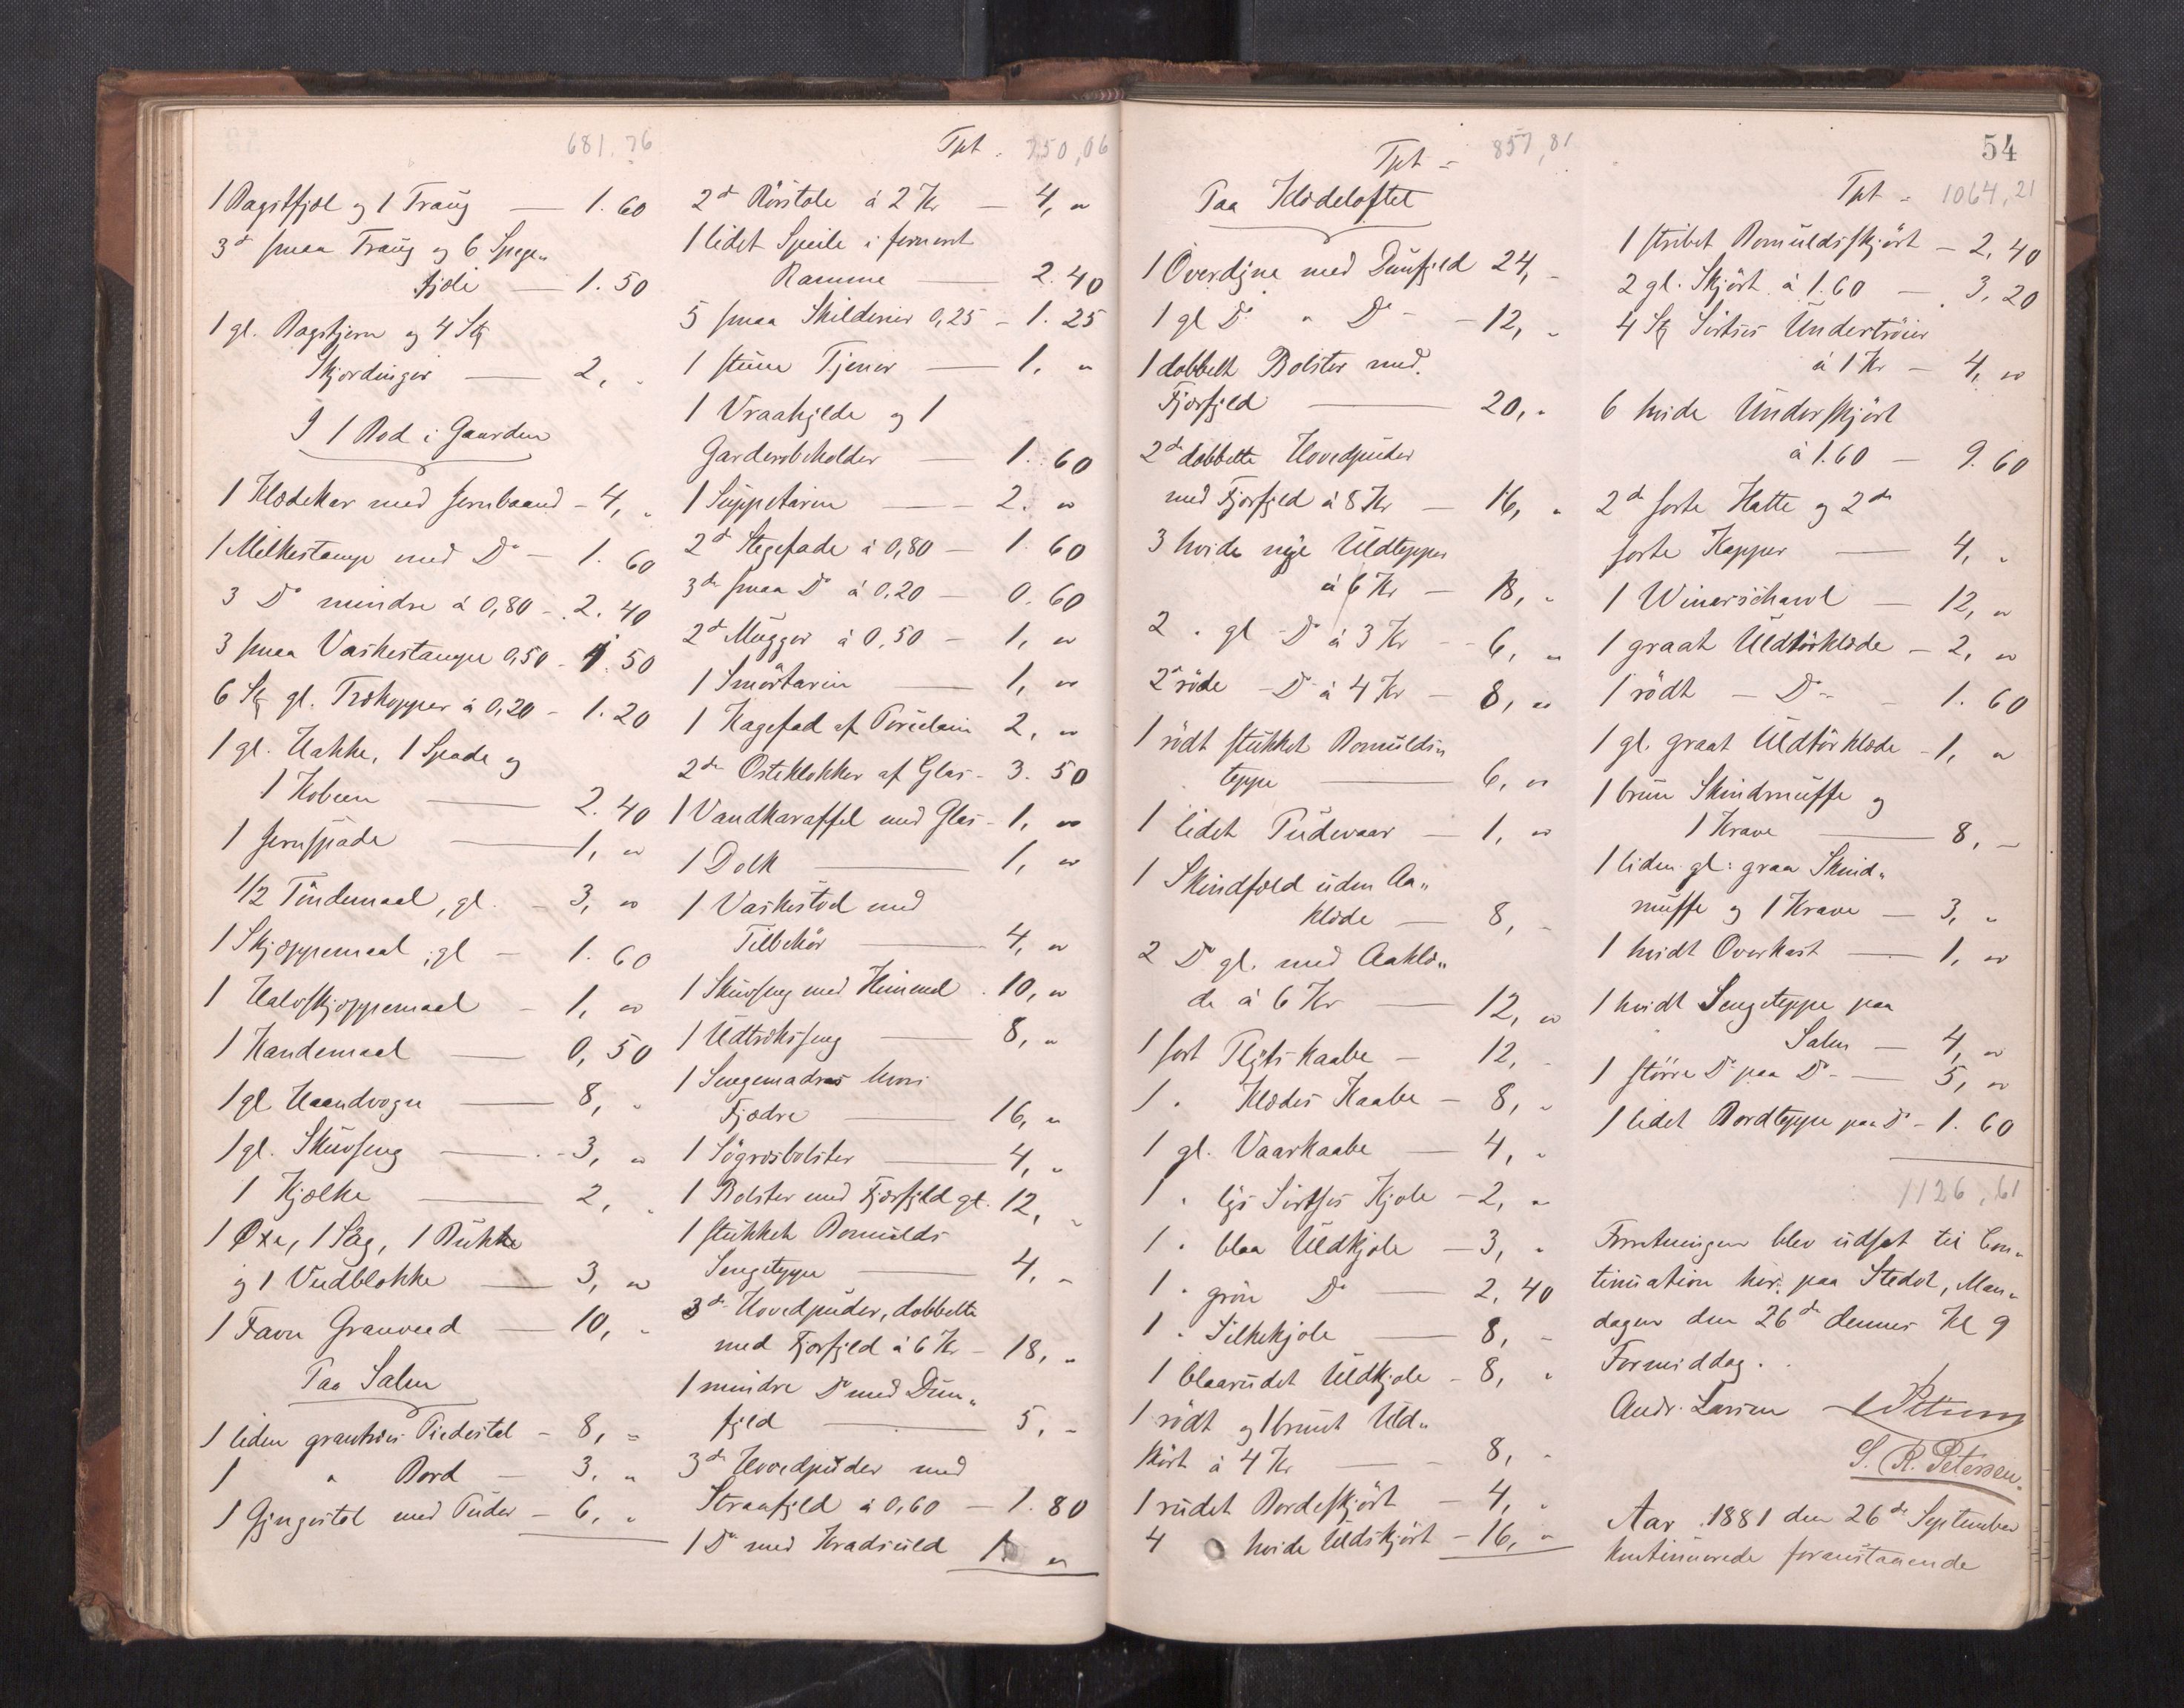 681.76
1 Bagstfjæl og 1 Traug — 1.60
3de smaa Traug og 6 Spege„
fjæle — 1.50
1 gl. Bagstjern og 4 Stk
Skjordinger — 2, „
I 1 Bod i Gaarden
1 Klædekar med Jernbaand – 4, „
1 Melkestampe med Do – 1.60
3 Do mindre á 0,80 – 2.40
3 smaa Vaskestamper 0,50 – 1.50
6 Stk gl. Trækopper á 0,20 – 1.20
1 gl. Hakke, 1 Spade og
1 Kobeen — 2.40
1 Jernspade — 1, „
1/2 Töndemaal, gl. – 3, „
1 Skjæppemaal, gl – 1.60
1 Halvskjæppemaal – 1, „
1 Kandemaal — 0,50
1 gl Haandvogn — 8, „
1 gl. Skuvseng — 3, „
1 Kjælke — 2, „
1 Øxe, 1 Sag, 1 Bukke
og 1 Vedblokke — 3, „
1 Favn Granved — 10, „
Paa Salen
1 liden grantræs Piedestal – 8, „
1 „ Bord – 3, „
1 Gyngestol med Puder – 6, „
Tpt. 750,06
2de Rörstole á 2 Kr — 4, „
1 lidet Speile i fernert
Ramme — 2.40
5 smaa Skilderier 0,25 – 1.25
1 stum Tjener — 1, „
1 Vraahylde og 1
Garderobeholder — 1.60
1 Suppetarin — 2. „
2de Stegefade á 0,80 — 1.60
3de smaa Do á 0.20 — 0.60
2de Mugger á 0.50 – 1, „
1 Smörtarin — 1, „
1 Kagefad af Porcelain 2, „
2de Osteklokker af Glas – 3.50
1 Vandkaraffel med Glas – 1, „
1 Dolk — 1, „
1 Vaskestol med
Tilbehör — 4, „
1 Skuvseng med Himmel . 10, „
1 Udtræksseng — 8, „
1 Sengemadras hvori
Fjædre — 16, „
1 Sögræsbolster — 4, „
1 Bolster med Fjærfyld gl. 12, „
1 stukket Bomulds
Sengeteppe — 4, „
3de Hovedpuder, dobbelte
med Fjærfyld á 6 Kr – 18, „
1 mindre Do med Dun„
fyld — 5, „
3de Hovedpuder med
Straafyld á 0,60 — 1.80
1 Do med Kradsuld 1. „
54
Tpt = 857,81
Paa Klædeloftet
1 Overdyne med Dunfyld 24, „
1 gl Do „ Do – – 12, „
1 dobbelt Bolster med
Fjærfyld — 20, „
2de dobbelte Hovedpuder
med Fjærfyld á 8 Kr — 16, „
3 hvide nye Uldtepper
á 6 Kr — 18, „
2 „ gl – Do á 3 Kr – – 6, „
2 röde – Do á 4 Kr – 8, „
1 rödt stukket Bomulds„
teppe — 6, „
1 lidet Pudevaar — 1, „
1 Skindfæld uden Aa„
klæde — 8, „
2 Do gl. med Aaklæ„
de á 6 Kr — 12, „
1 sort Flöjls Kaabe – 12, „
1 „ Klædes Kaabe – 8, „
1 gl. Vaarkaabe — 4, „
1 „ lys Sirtses Kjole – 2, „
1 „ blaa Uldkjole – 3, „
1 „ grön Do — 2,40
1 „ Silkekjole — 8, „
1 blaarudet Uldkjole – 8, „
1 rödt og 1 brunt Uld„
skört á 4 Kr — 8, „
1 rudet Bordeskjört – 4, „
4 hvide Uldskjört – 16, „
Tpt = 1064,21
1 stribet Bomuldsskjört – 2,40
2 gl. Skjört á 1.60 — 3,20
4 Stk Sirtses Undertröier
á 1 Kr — 4, „
6 hvide Underskjört
á 1.60 — 9.60
2de sorte Hatte og 2de
sorte Kapper — 4, „
1 Winerschawl — 12, „
1 graat Uldtörklæde – 2, „
1 rödt – Do – 1.60
1 gl. graat Uldtörklæde – 1, „
1 brun Skindmuffe og
1 Krave — 8, –
1 liden gl: graa Skind„
muffe og 1 Krave — 3, „
1 hvidt Overkast — 1, „
1 hvidt Sengeteppe paa
Salen — 4, „
1 större Do paa Do – — 5, „
1 lidet Bordteppe paa Do – 1.60
1126,61
Forretningen blev udsat til Con„
tinuation her paa Stedet, Man„
dagen den 26de dennes Kl 9
Formiddag.
Andr. Larsen
S. R. Petersen.
Aar 1881 den 26de September
kontinuerede foranstaaende